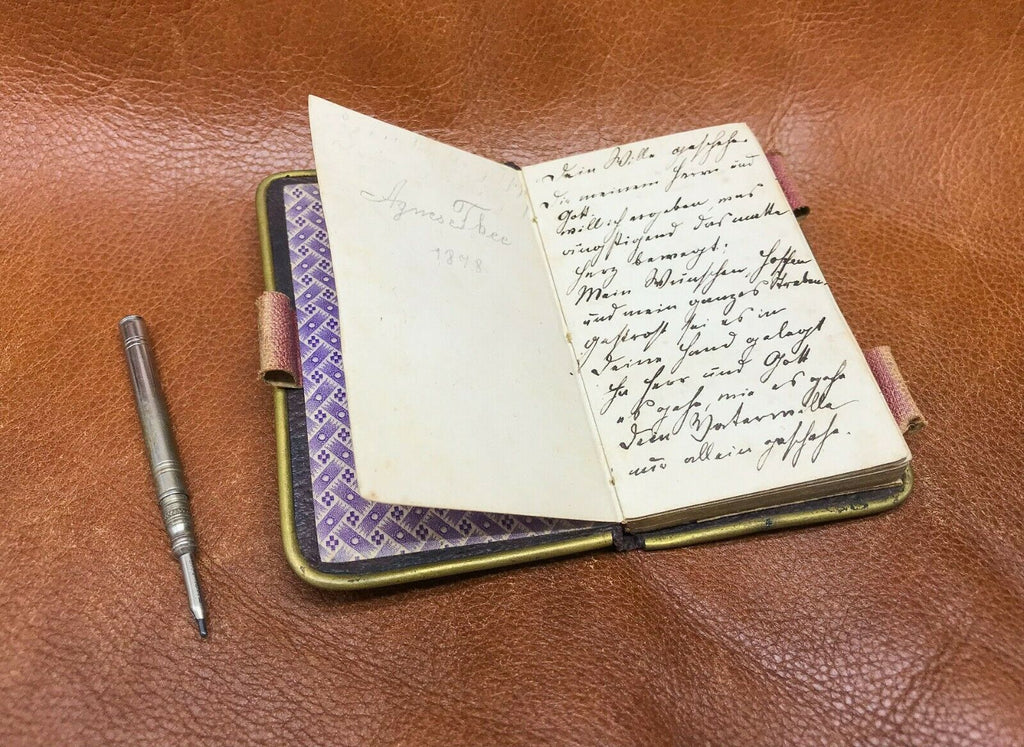 Agnes Thee
1878
Dein Wille geschehe.
Die meinem Herrn und
Gott
will ich ergeben, was
ängstigend das matte
Herz bewegt.
Mein Wünschen, Hoffen
und mein ganzes Streben,
getrost sei es in
Deine Hand gelegt
Ja Herr und Gott
es gehe, wie es gehe
Dein Vaterwille
nur allein geschehe.